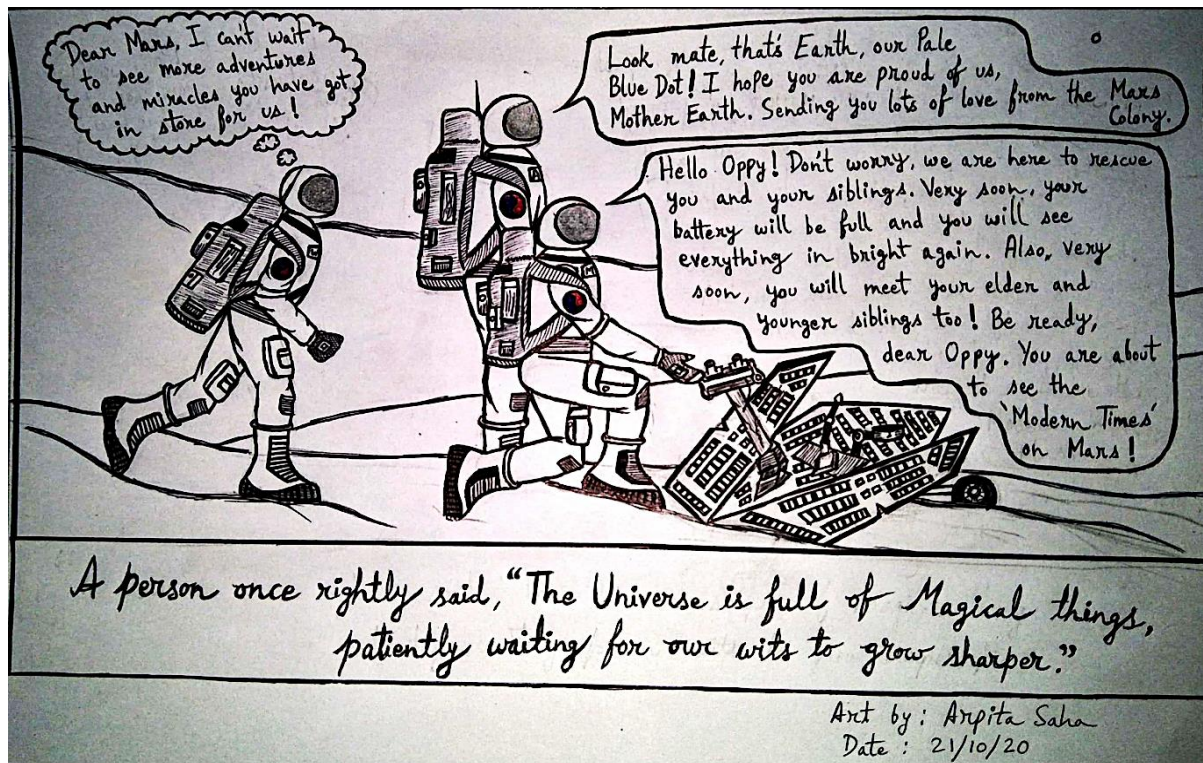 Dear Mars, I can't wait
to see more adventures
and miracles you have got
in store for us!
Look mate, that's Earth, our Pale
Blue Dot! I hope you are proud of us,
Mother Earth. Sending you lots of love from the Mars
Colony.
Hello Oppy! Don't worry, we are here to rescue
you and your siblings. Very soon, your
battery will be full and you will see
everything in bright again. Also, very
soon, you will meet your elder and
younger siblings too! Be ready,
dear Oppy. You are about
to see the
'Modern Times'
on Mars!
A person once rightly said, "The Universe is full of Magical things,
patiently waiting for our wits to grow sharper."
Art by: Arpita Saha
Date : 21/10/20